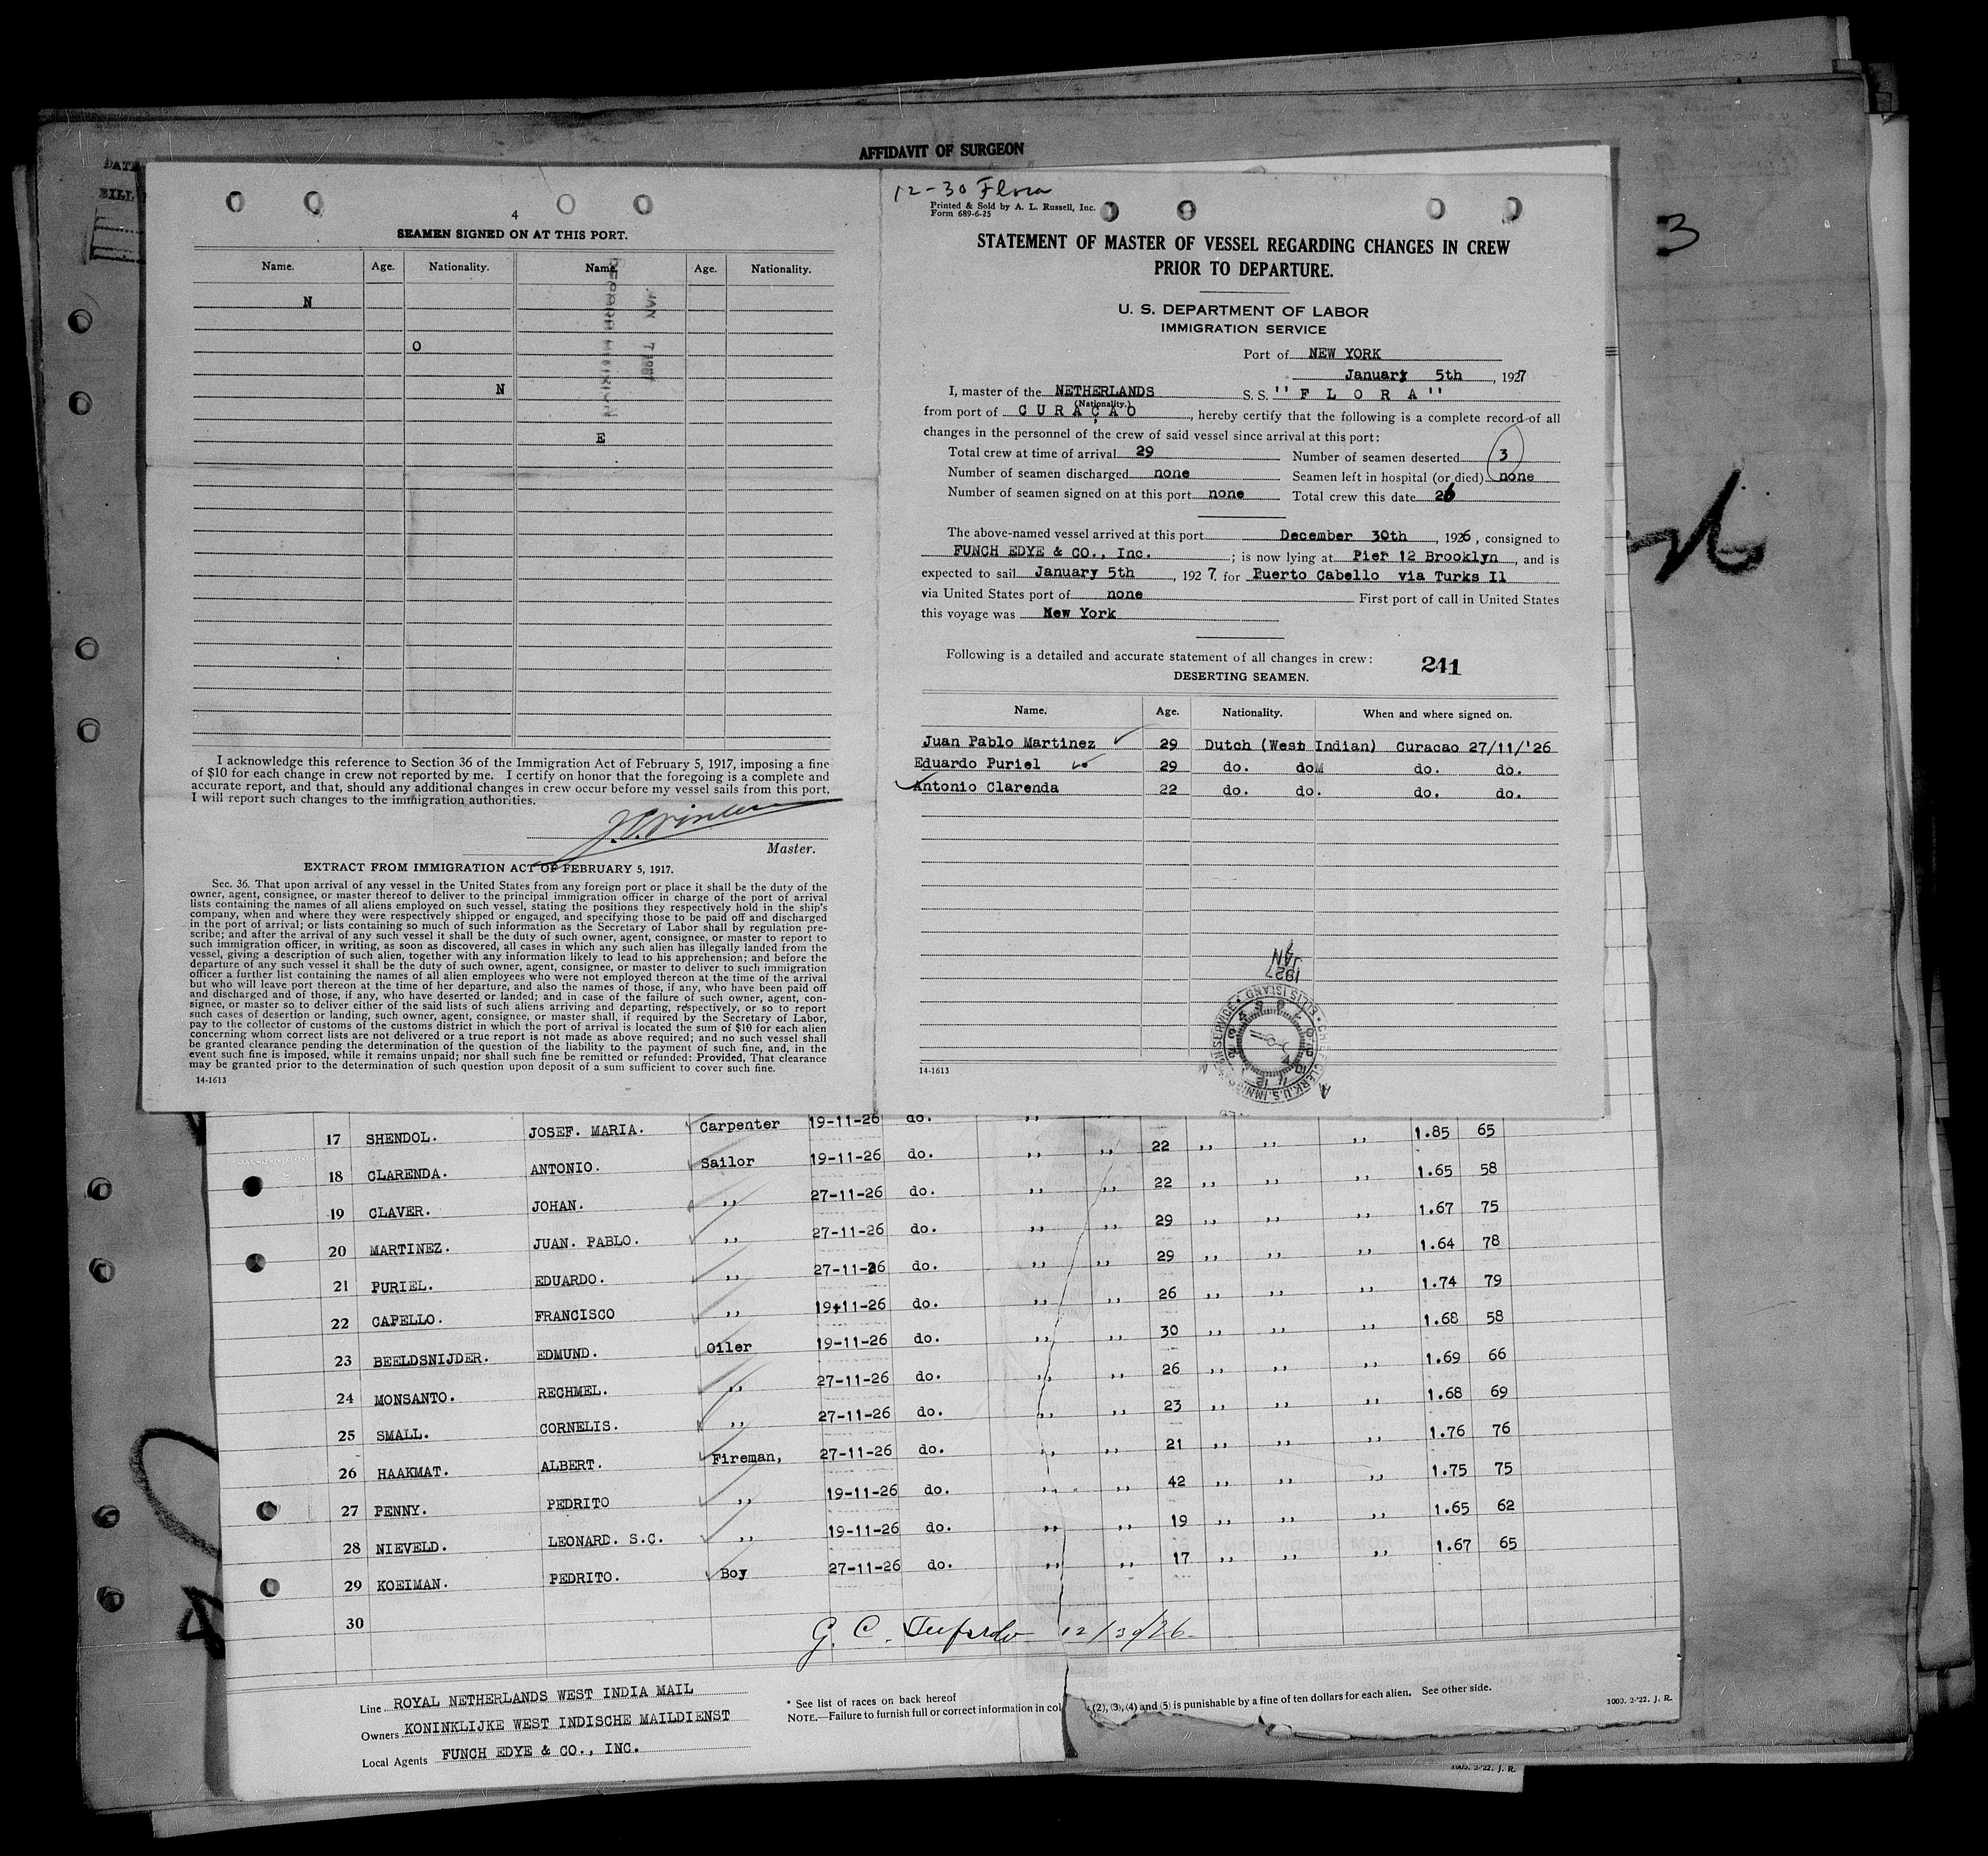 AFFIDAVIT OF SURGEON
3
4
SEAMEN SIGNED ON AT THIS PORT.
Name. Age. Nationality. Name. Age. Nationality.
N
O
N
E
JAN 7 1927
I acknowledge this reference to Section 36 of the Immigration Act of February 5, 1917, imposing a fine
of $10 for each change in crew not reported by me. I certify on honor that the foregoing is a complete and
accurate report, and that, should any additional changes in crew occur before my vessel sails from this port,
I will report such changes to the immigration authorities.
Master.
EXTRACT FROM IMMIGRATION ACT OF FEBRUARY 5, 1917.
Sec. 36. That upon arrival of any vessel in the United States from any foreign port or place it shall be the duty of the
owner, agent, consignee, or master thereof to deliver to the principal immigration officer in charge of the port of arrival
lists containing the names of all aliens employed on such vessel, stating the positions they respectively hold in the ship's
company, when and where they were respectively shipped or engaged, and specifying those to be paid off and discharged
in the port of arrival; or lists containing so much of such information as the Secretary of Labor shall by regulation pre-
scribe; and after the arrival of any such vessel it shall be the duty of such owner, agent, consignee, or master to report to
such immigration officer, in writing, as soon as discovered, all cases in which any such alien has illegally landed from the
vessel, giving a description of such alien, together with any information likely to lead to his apprehension; and before the
departure of any such vessel it shall be the duty of such owner, agent, consignee, or master to deliver to such immigration
officer a further list containing the names of all alien employees who were not employed thereon at the time of the arrival
but who will leave port thereon at the time of her departure, and also the names of those, if any, who have been paid off
and discharged and of those, if any, who have deserted or landed; and in case of the failure of such owner, agent, con-
signee, or master so to deliver either of the said lists of such aliens arriving and departing, respectively, or so to report
such cases of desertion or landing, such owner, agent, consignee, or master shall, if required by the Secretary of Labor,
pay to the collector of customs of the customs district in which the port of arrival is located the sum of $10 for each alien
concerning whom correct lists are not delivered or a true report is not made as above required; and no such vessel shall
be granted clearance pending the determination of the question of the liability to the payment of such fine, and, in the
event such fine is imposed, while it remains unpaid; nor shall such fine be remitted or refunded: Provided, That clearance
may be granted prior to the determination of such question upon deposit of a sum sufficient to cover such fine.
14-1613
12-30 Flora
Printed & Sold by A. L. Russell, Inc.
Form 689-6-25
STATEMENT OF MASTER OF VESSEL REGARDING CHANGES IN CREW
PRIOR TO DEPARTURE.
U. S. DEPARTMENT OF LABOR
IMMIGRATION SERVICE
Port of NEW YORK
January 5th, 1927
I, master of the NETHERLANDS S. S. "F L O R A"
(Nationality.)
from port of C U R A Ç A O, hereby certify that the following is a complete record of all
changes in the personnel of the crew of said vessel since arrival at this port:
Total crew at time of arrival 29 Number of seamen deserted 3
Number of seamen discharged none Seamen left in hospital (or died) none
Number of seamen signed on at this port none Total crew this date 26
The above-named vessel arrived at this port December 30th, 1926, consigned to
FUNCH EDYE & CO., Inc.; is now lying at Pier 12 Brooklyn, and is
expected to sail January 5th, 1927, for Puerto Cabello via Turks Il
via United States port of none First port of call in United States
this voyage was New York
Following is a detailed and accurate statement of all changes in crew: 241
DESERTING SEAMEN.
Name. Age. Nationality. When and where signed on.
Juan Pablo Martinez 29 Dutch (West Indian) Curacao 27/11/'26
Eduardo Puriel 29 do. doM do. do.
Antonio Clarenda 22 do. do. do. do.
JAN 7
1927
CHIEF CLERK U.S. IMMIG'N SERVICE ELLIS ISLAND
14-1613
17 SHENDOL. JOSEF. MARIA. Carpenter 19-11-26 do. ,, 1.85 65
18 CLARENDA. ANTONIO. Sailor 19-11-26 do. ,, ,, 22 ,, ,, ,, 1.65 58
19 CLAVER. JOHAN. ,, 27-11-26 do. ,, ,, 22 ,, ,, ,, 1.67 75
20 MARTINEZ. JUAN. PABLO. ,, 27-11-26 do. ,, ,, 29 ,, ,, ,, 1.64 78
21 PURIEL. EDUARDO. ,, 27-11-26 do. ,, ,, 29 ,, ,, ,, 1.74 79
22 CAPELLO. FRANCISCO ,, 19-11-26 do. ,, ,, 26 ,, ,, ,, 1.68 58
23 BEELDSNIJDER. EDMUND. Oiler 19-11-26 do. ,, ,, 30 ,, ,, ,, 1.69 66
24 MONSANTO. RECHMEL. ,, 27-11-26 do. ,, ,, 26 ,, ,, ,, 1.68 69
25 SMALL. CORNELIS. ,, 27-11-26 do. ,, ,, 23 ,, ,, ,, 1.76 76
26 HAAKMAT. ALBERT. Fireman, 27-11-26 do. ,, ,, 21 ,, ,, ,, 1.75 75
27 PENNY. PEDRITO ,, 19-11-26 do. ,, ,, 42 ,, ,, ,, 1.65 62
28 NIEVELD. LEONARD. S.C. ,, 19-11-26 do. ,, ,, 19 ,, ,, ,, 1.67 65
29 KOEIMAN. PEDRITO. Boy 27-11-26 do. ,, ,, 17 ,, ,, ,,
30
G. C. 12/30/26
Line ROYAL NETHERLANDS WEST INDIA MAIL
Owners KONINKLIJKE WEST INDISCHE MAILDIENST
Local Agents FUNCH EDYE & CO., INC.
* See list of races on back hereof
NOTE.—Failure to furnish full or correct information in col (2), (3), (4) and (5) is punishable by a fine of ten dollars for each alien. See other side.
1000. 2-'22. J. R.
1000. 2-'22. J. R.